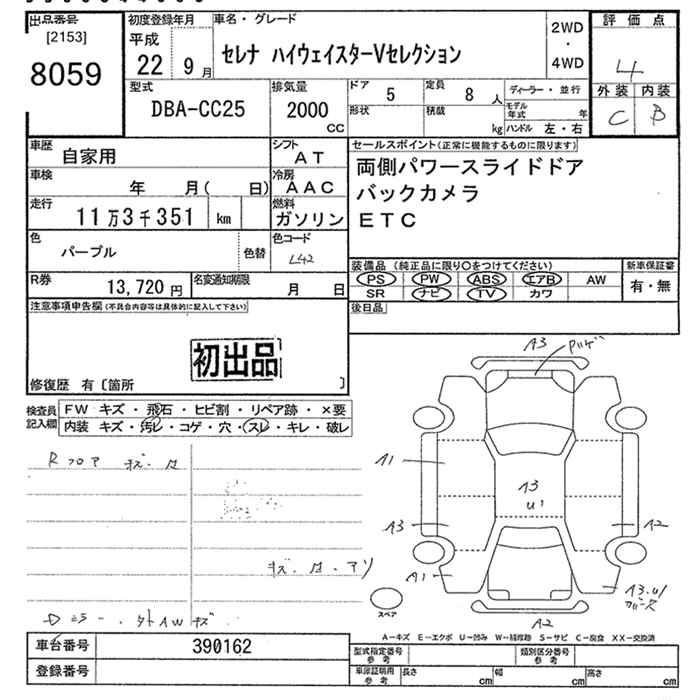 出品番号
[2153]
8059
初度登録年月
平成
22年9月
車名・グレード
セレナ ハイウェイスターVセレクション
2WD
・
4WD
評価点
4
外装 内装
C B
型式
DBA-CC25
排気量
2000
CC
ドア 5
定員 8 人
形状
積載 kg
ディーラー・並行
モデル年式 年
ハンドル 左・右
車歴 自家用
シフト AT
車検 年 月( 日)
冷房 AAC
走行 11万3千351 km
燃料 ガソリン
色 パープル 色替
色コード L42
R券 13,720円
名変通知期限 月 日
セールスポイント(正常に機能するものに限ります)
両側パワースライドドア
バックカメラ
ETC
装備品 (純正品に限り○をつけてください)
PS PW ABS エアB AW
SR ナビ TV カワ
新車保証書
有・無
後日品
注意事項申告欄(不具合内容等は具体的に記入して下さい)
初出品
修復歴 有〔箇所 〕
検査員記入欄
FW キズ・飛石・ヒビ割・リペア跡・×要
内装 キズ・汚レ・コゲ・穴・スレ・キレ・破レ
Rフロア
A3
A1
A3
U1
A3
A2
A1
A3.U1
A2
スペア
A-キズ E-エクボ U-凹み W-補修跡 S-サビ C-腐食 XX-交換済
車台番号 390162
登録番号
型式指定番号 参考
類別区分番号 参考
車庫証明用 参考
長さ cm
幅 cm
高さ cm